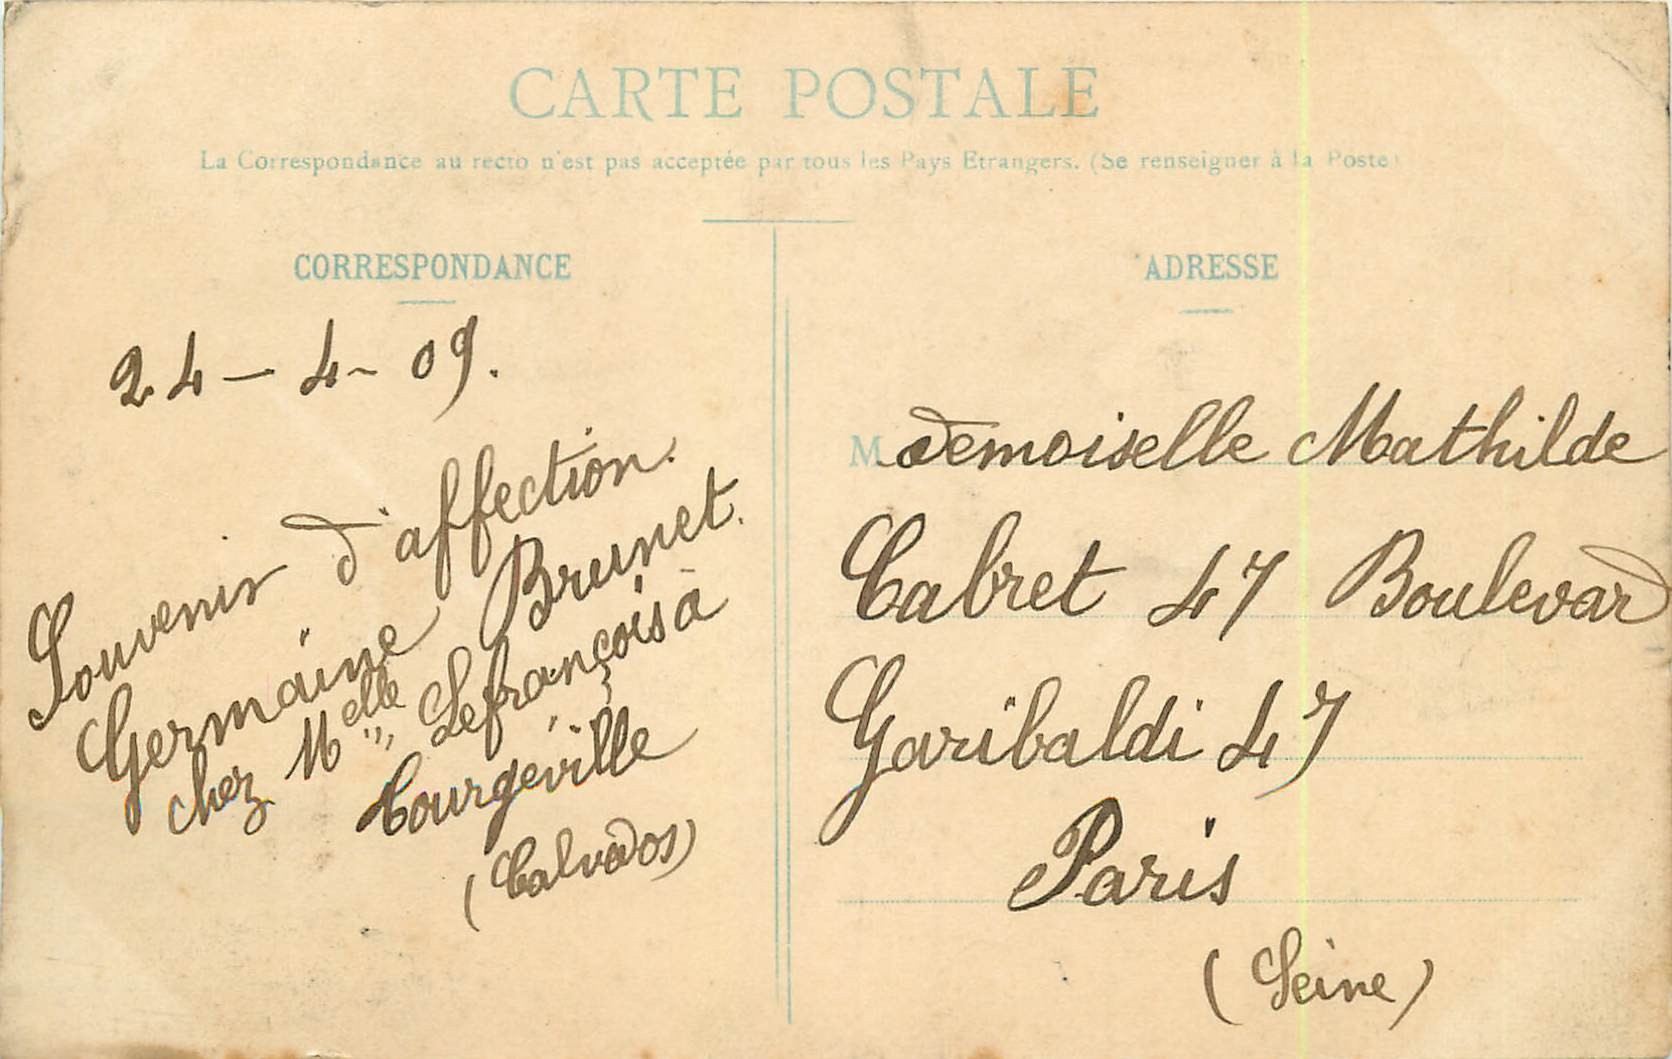 CARTE POSTALE
La Correspondance au recto n'est pas acceptée par tous les Pays Etrangers. (Se renseigner à la Poste)
CORRESPONDANCE
24 - 4 - 09.
Souvenir d'affection.
Germaine Brunet.
chez Melle Lefrançois à
Tourgéville
(Calvados)
ADRESSE
Mademoiselle Mathilde
Cabret 47 Boulevard
Garibaldi 47
Paris
(Seine)